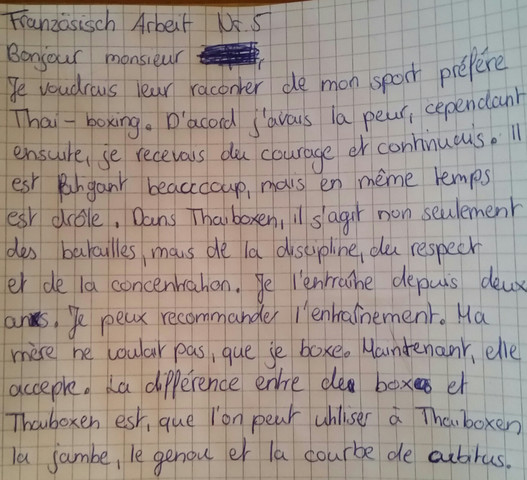 Französisch Arbeit Nr. 5
Bonjour monsieur
Je voudrais leur raconter de mon sport préfére
Thai-boxing. D'acord j'avais la peur, cependant
ensuite, je recevais du courage et continuais. Il
est fatigant beacccoup, mais en même temps
est drôle. Dans Thaiboxen, il s'agit non seulement
des batailles, mais de la discipline, du respect
et de la concentration. Je l'entraîne depuis deux
ans. Je peux recommander l'entraînement. Ma
mère ne voulait pas, que je boxe. Maintenant, elle
accepte. La différence entre de boxe et
Thaiboxen est, que l'on peut utiliser à Thaiboxen
la jambe, le genou et la courbe de cubitus.